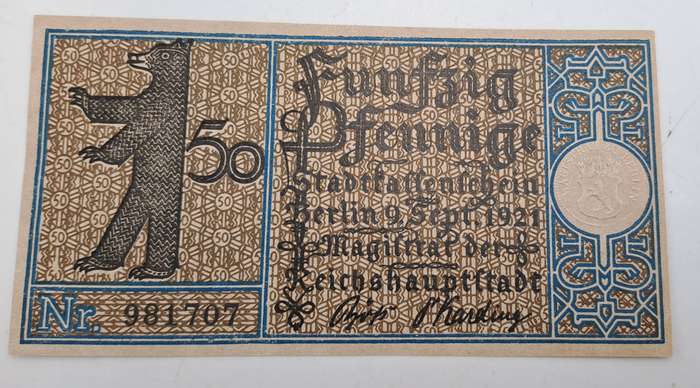 50
Fünfzig
Pfennige
Stadtkassenschein
Berlin 9. Sept. 1921
Magistrat der
Reichshauptstadt
Nr. 981707